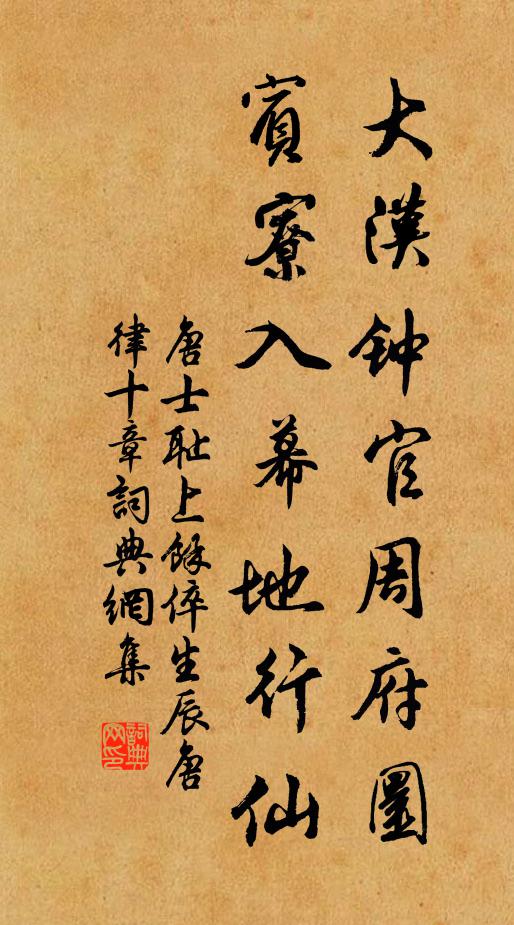 大漢钟官周府圜
賓寮入幕地行仙
唐士耻上餘倅生辰唐
律十章詞典網集
詞典網印